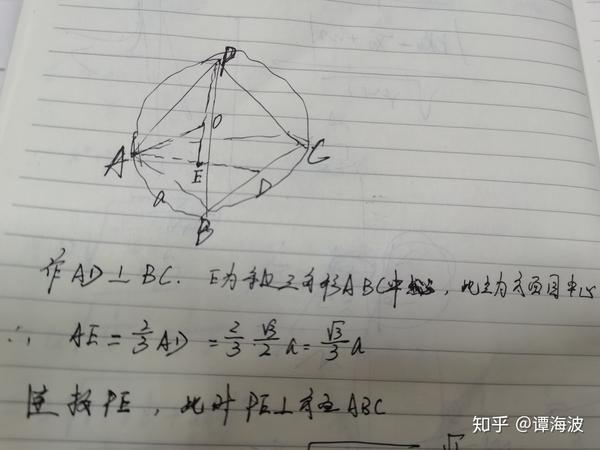 P
O
A
E
C
D
a
B
作 AD⊥BC. E为 三角形ABC中 , 此 为 面圆中心
∴ AE = 2/3 AD = 2/3 √3/2 a = √3/3 a
连接 PE , 此时 PE⊥ 面 ABC
知乎 @谭海波